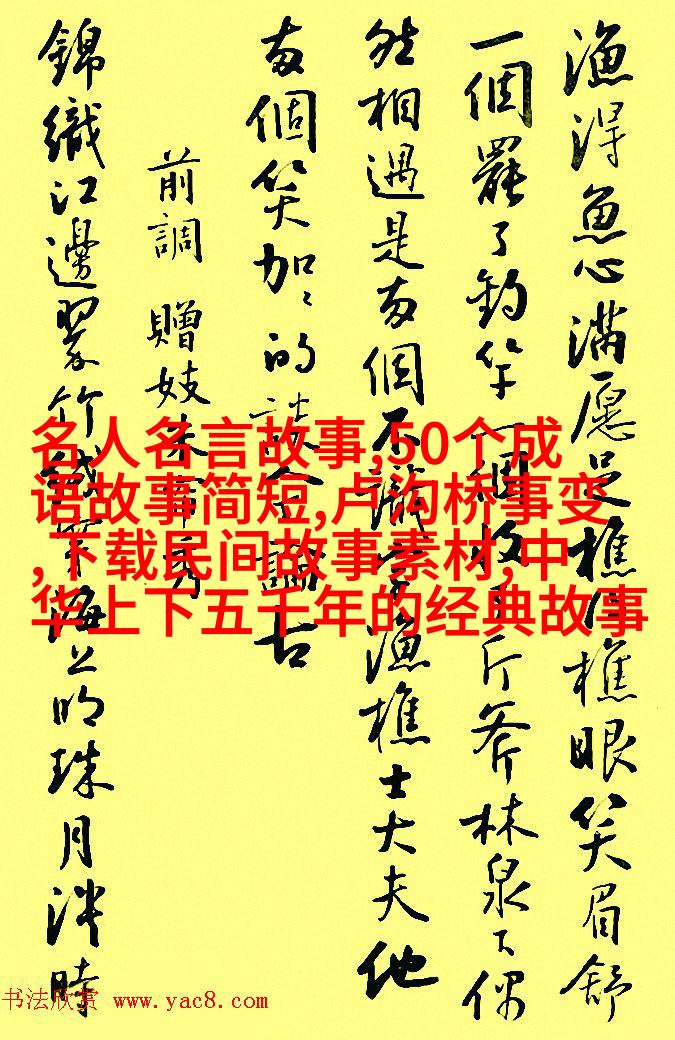 漁得魚心滿愿足樵得樵眼笑眉舒
一個罷了釣竿一個收了斤斧林泉下偶
然相遇是兩個不識字漁樵士大夫他
兩個笑加加的談今論古
前調 贈妓朱簾秀
錦織江邊翠竹絨穿海上明珠月淡時
名人名言故事,50个成
语故事简短,卢沟桥事变
,下载民间故事素材,中
华上下五千年的经典故事
书法欣赏 www.yac8.com